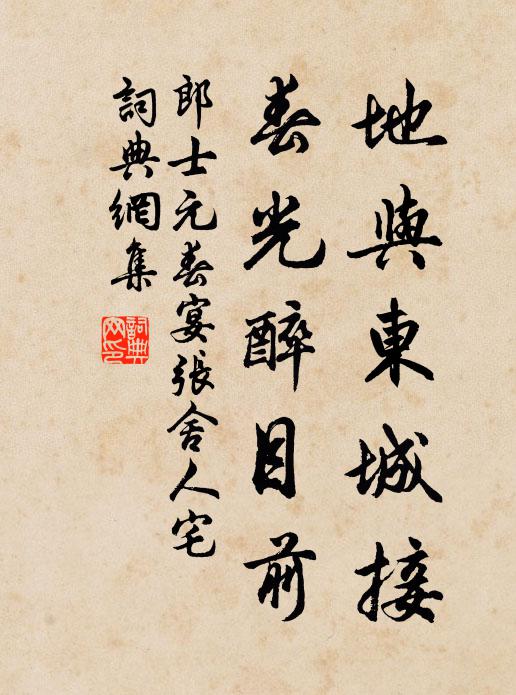 地與東城接
春光醉目前
郎士元春宴張舍人宅
詞典網集
詞典網印